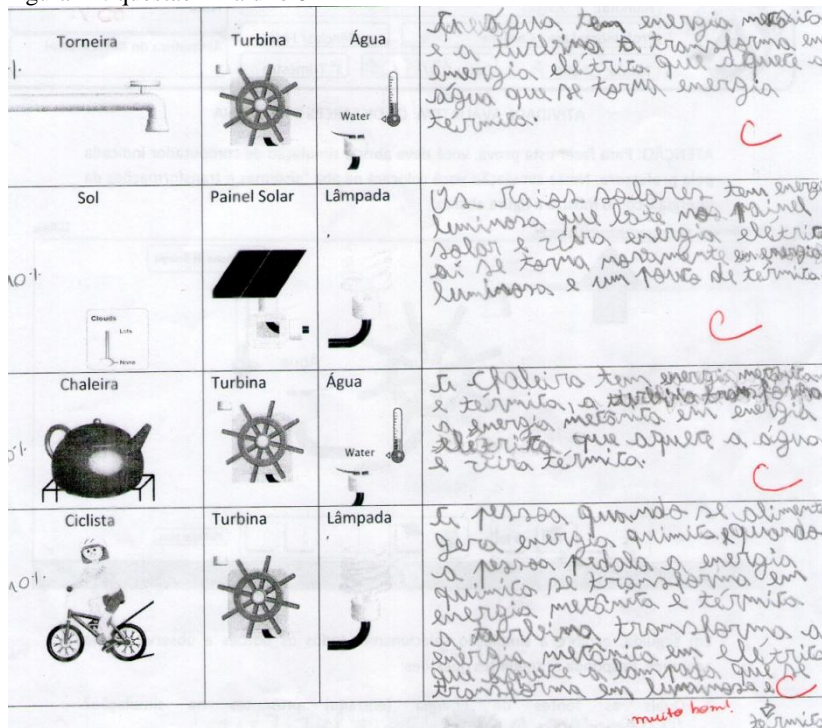 Torneira
Turbina
Água
Water
A água tem energia mecânica
e a turbina transforma em
energia elétrica que aquece a
água que se torna energia
térmica.
C
Sol
Painel Solar
Lâmpada
Clouds
Lots
None
10%
Os raios solares tem energia
luminosa que bate nos painel
solar e vira energia elétrica
aí se torna novamente em energia
luminosa e um pouco de térmica
C
Chaleira
Turbina
Água
Water
0%
A Chaleira tem energia mecânica
e térmica, a turbina transforma
a energia mecânica em energia
elétrica que aquece a água
e vira térmica.
C
Ciclista
Turbina
Lâmpada
10%
A pessoa quando se alimenta
gera energia química e quando
a pessoa pedala a energia
química se transforma em
energia mecânica e térmica
a turbina transforma a
energia mecânica em elétrica
que aquece a lampada que se
transforma em luminosa e
C
muito bom!
térmica